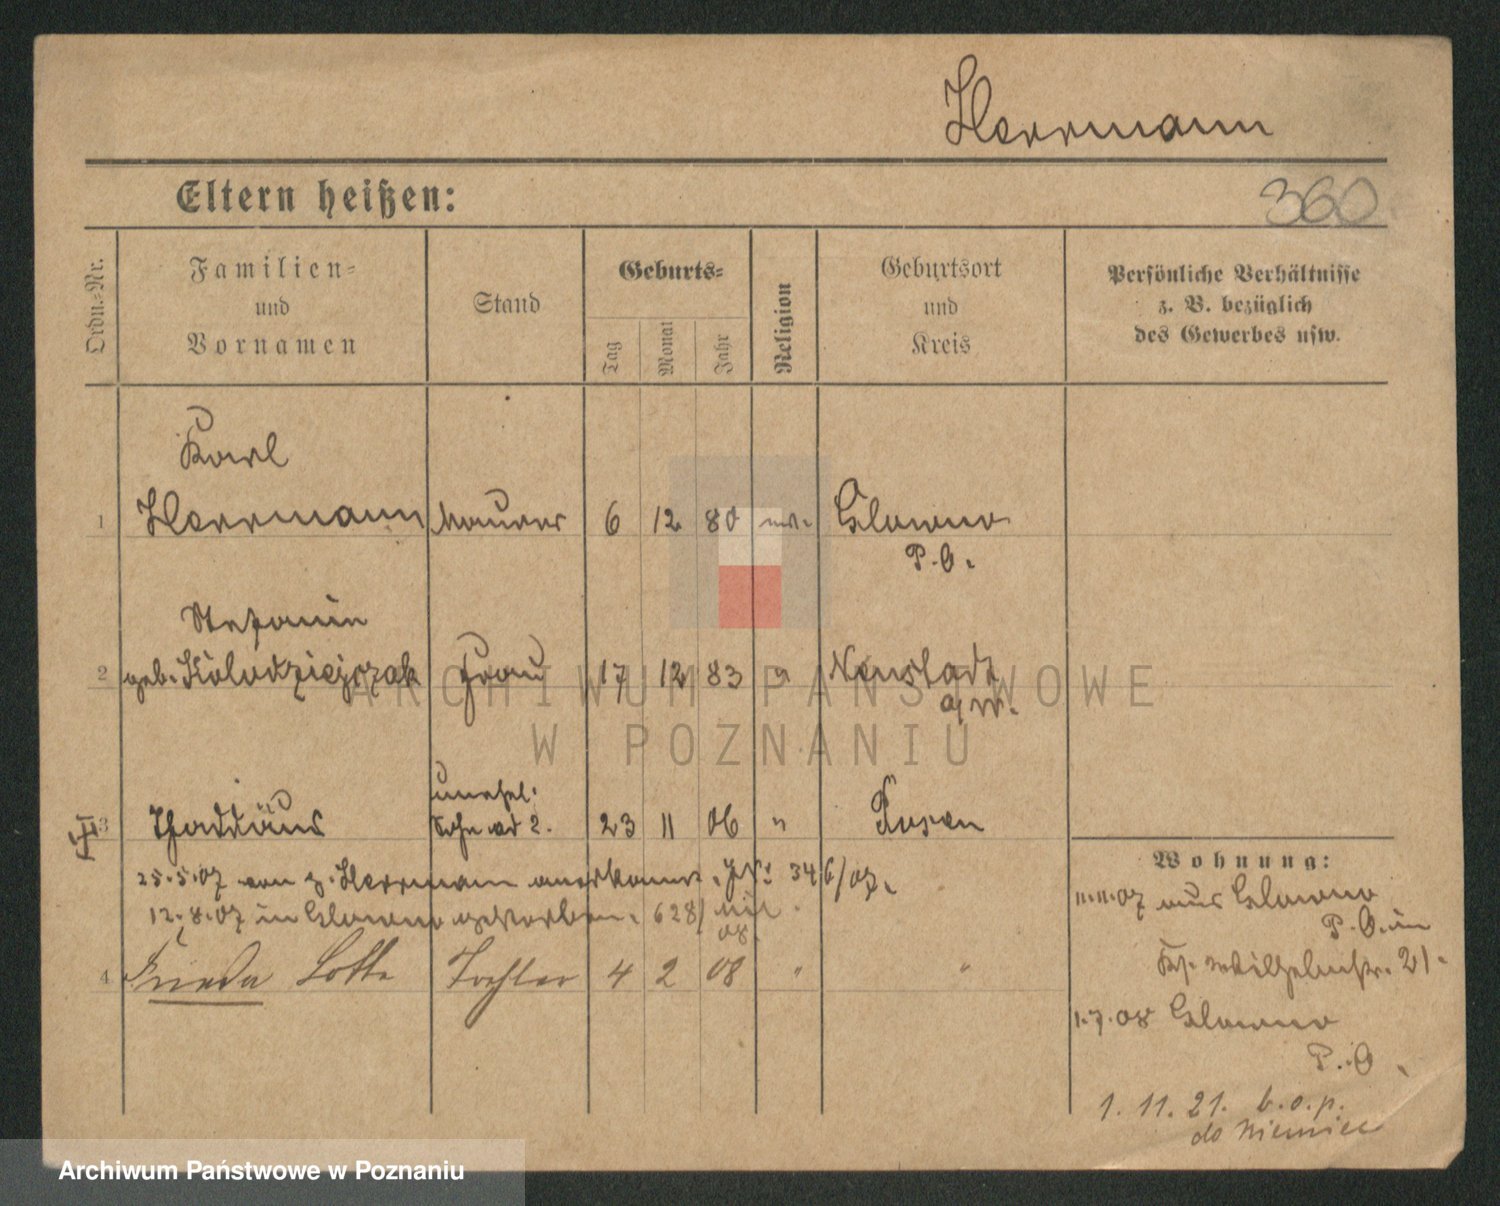 Herrmann
Eltern heißen:
360
Ordn.=Nr.
Familien=
und
Vornamen
Stand
Geburts=
Tag
Monat
Jahr
Religion
Geburtsort
und
Kreis
Persönliche Verhältnisse
z. B. bezüglich
des Gewerbes usw.
Karl
1 Herrmann Maurer 6 12 80 Glowno
P.O.
Stefanie
2 geb. Kolodziejczak Frau 17 12 83 " Neustadt
a/W.
unehel.
3 Thaddäus Sohn ad 2. 23 11 06 " Posen
25.5.07 von p. Herrmann anerkannt. J.N: 346/07.
12.8.07 in Glowno gestorben. 628/
08.
4 Frieda Lotte Tochter 4 2 08 " "
Wohnung:
11.11.07 aus Glowno
P.O. in
Wilhelmstr. 21.
1.7.08 Glowno
P.O.
1. 11. 21. b.o.p.
do Niemiec
ARCHIWUM PAŃSTWOWE
W POZNANIU
Archiwum Państwowe w Poznaniu